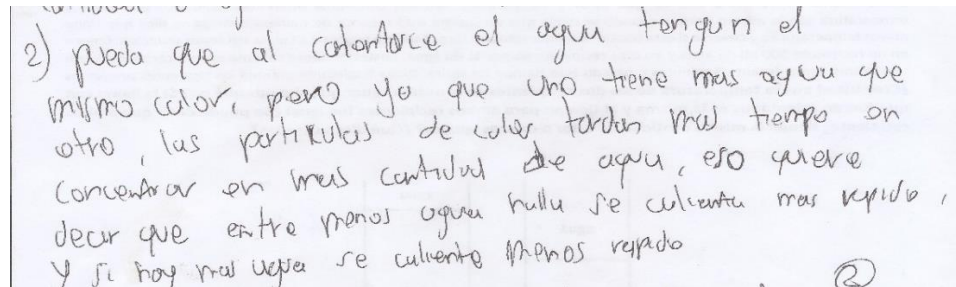 2) pueda que al calentarce el agua tengan el
mismo calor, pero ya que uno tiene mas agua que
otro, las partikulas de calor tardan mas tiempo en
concentrar en mas cantidad de agua, eso quiere
decir que entre menos agua halla se calienta mas rapido,
y si hay mas agua se caliente menos rapido